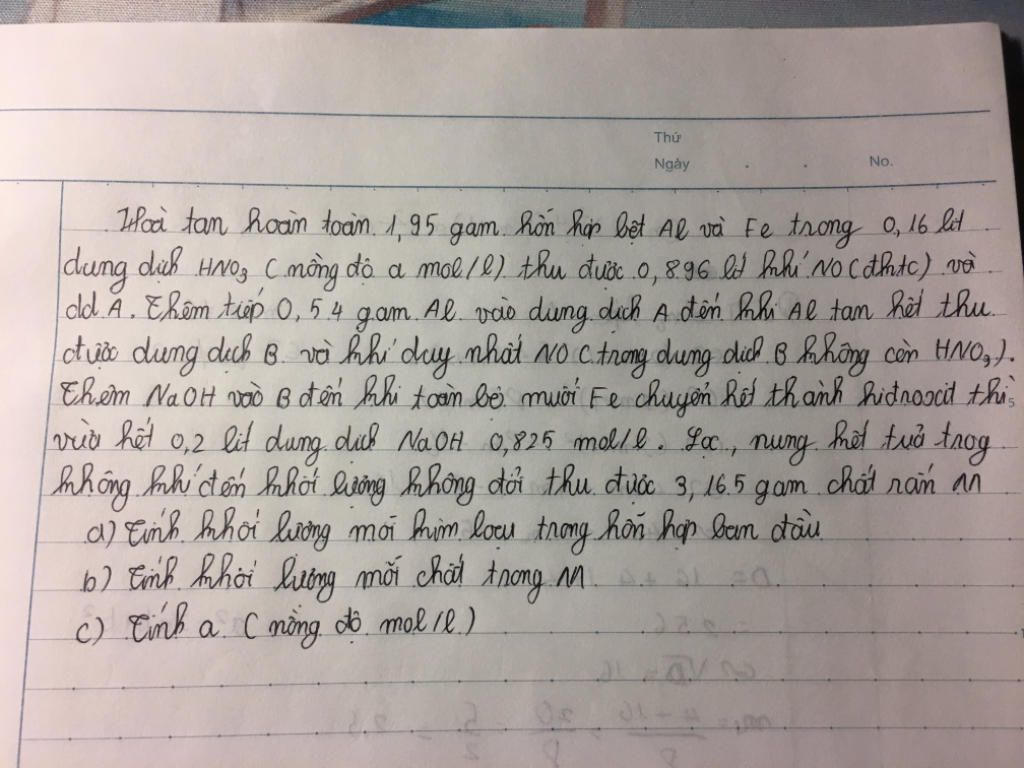 Thứ
Ngày . . No.
Hoà tan hoàn toàn 1,95 gam hỗn hợp bột Al và Fe trong 0,16 lít
dung dịch HNO3 (nồng độ a mol/l) thu được 0,896 lít khí NO (đktc) và
dd A. Thêm tiếp 0,54 gam Al vào dung dịch A đến khi Al tan hết thu
được dung dịch B và khí duy nhất NO (trong dung dịch B không còn HNO3).
Thêm NaOH vào B đến khi toàn bộ muối Fe chuyển hết thành hiđroxit thì
vừa hết 0,2 lít dung dịch NaOH 0,825 mol/l. Lọc, nung kết tuả trog
không khí đến khối lượng không đổi thu được 3,165 gam chất rắn M
a) Tính khối lượng mỗi kim loại trong hỗn hợp ban đầu
b) Tính khối lượng mỗi chất trong M
c) Tính a (nồng độ mol/l)